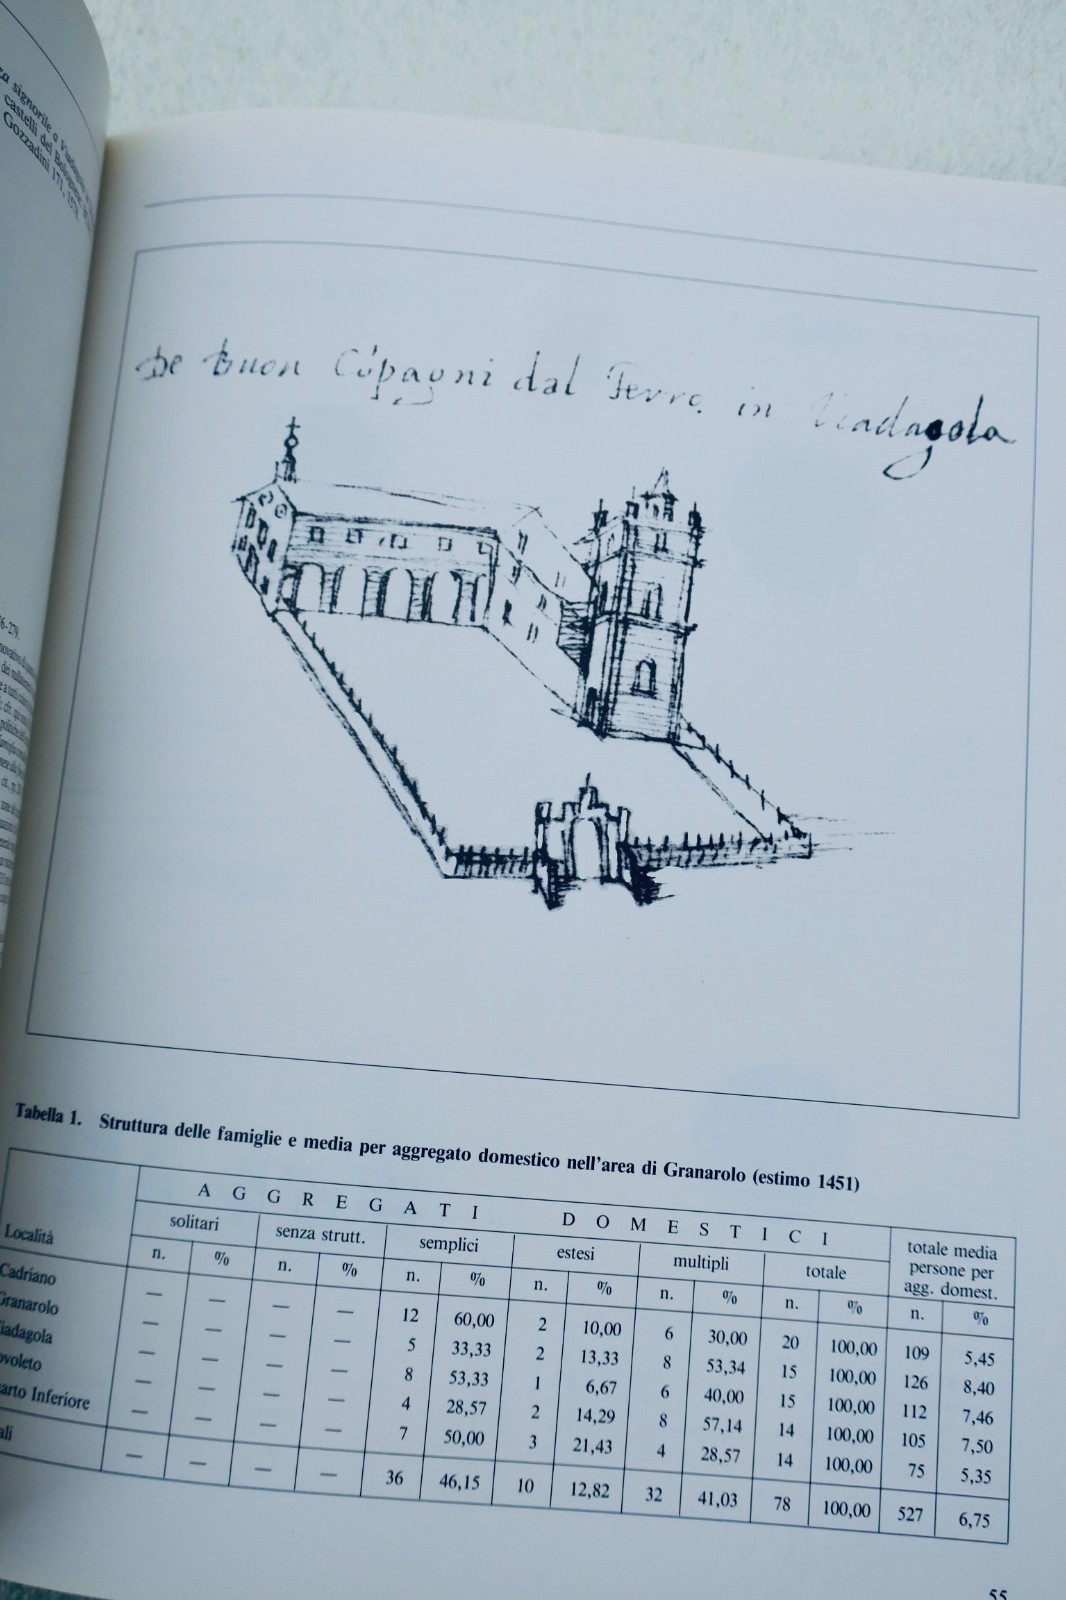 signorile a Viadagola
castelli del Bolognese
Gozzadini 171, 1578.
6-279.
De Buon Cõpagni dal Ferro. in Viadagola
Tabella 1. Struttura delle famiglie e media per aggregato domestico nell'area di Granarolo (estimo 1451)
Località AGGREGATI DOMESTICI totale media persone per agg. domest.
solitari senza strutt. semplici estesi multipli totale
n. % n. % n. % n. % n. % n. % n. %
Cadriano — — — — 12 60,00 2 10,00 6 30,00 20 100,00 109 5,45
Granarolo — — — — 5 33,33 2 13,33 8 53,34 15 100,00 126 8,40
iadagola — — — — 8 53,33 1 6,67 6 40,00 15 100,00 112 7,46
ovoleto — — — — 4 28,57 2 14,29 8 57,14 14 100,00 105 7,50
arto Inferiore — — — — 7 50,00 3 21,43 4 28,57 14 100,00 75 5,35
ali — — — — 36 46,15 10 12,82 32 41,03 78 100,00 527 6,75
55